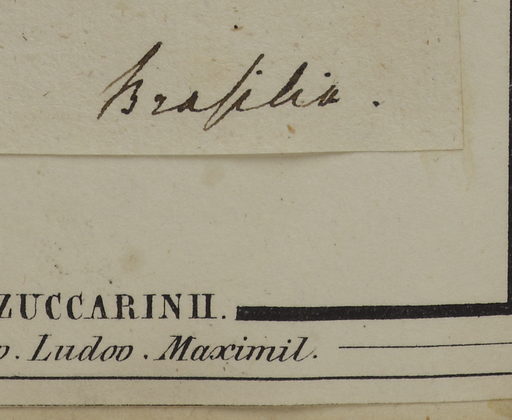 Brasilia.
ZUCCARINII.
Ludov. Maximil.